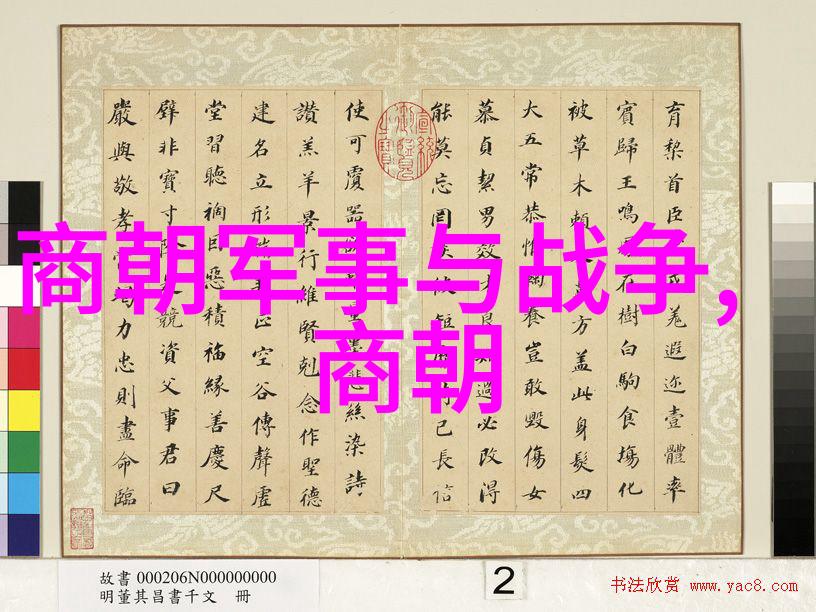 育黎首臣戎羌遐迩壹體率
賓歸王鳴在樹白駒食場化
被草木賴方蓋此身髮四
大五常恭惟鞠養豈敢毀傷女
慕貞絜男效才良過必改得
能莫忘罔彼短己長信
使可覆器量墨悲絲染詩
讚羔羊景行維賢剋念作聖德
建名立形端正空谷傳聲虛
堂習聽禍因惡積福緣善慶尺
璧非寶寸競資父事君曰
嚴與敬孝當竭力忠則盡命臨
商朝军事与战争，
商朝
故書 000206N000000000
明董其昌書千文 冊
2
书法欣赏 www.yac8.com